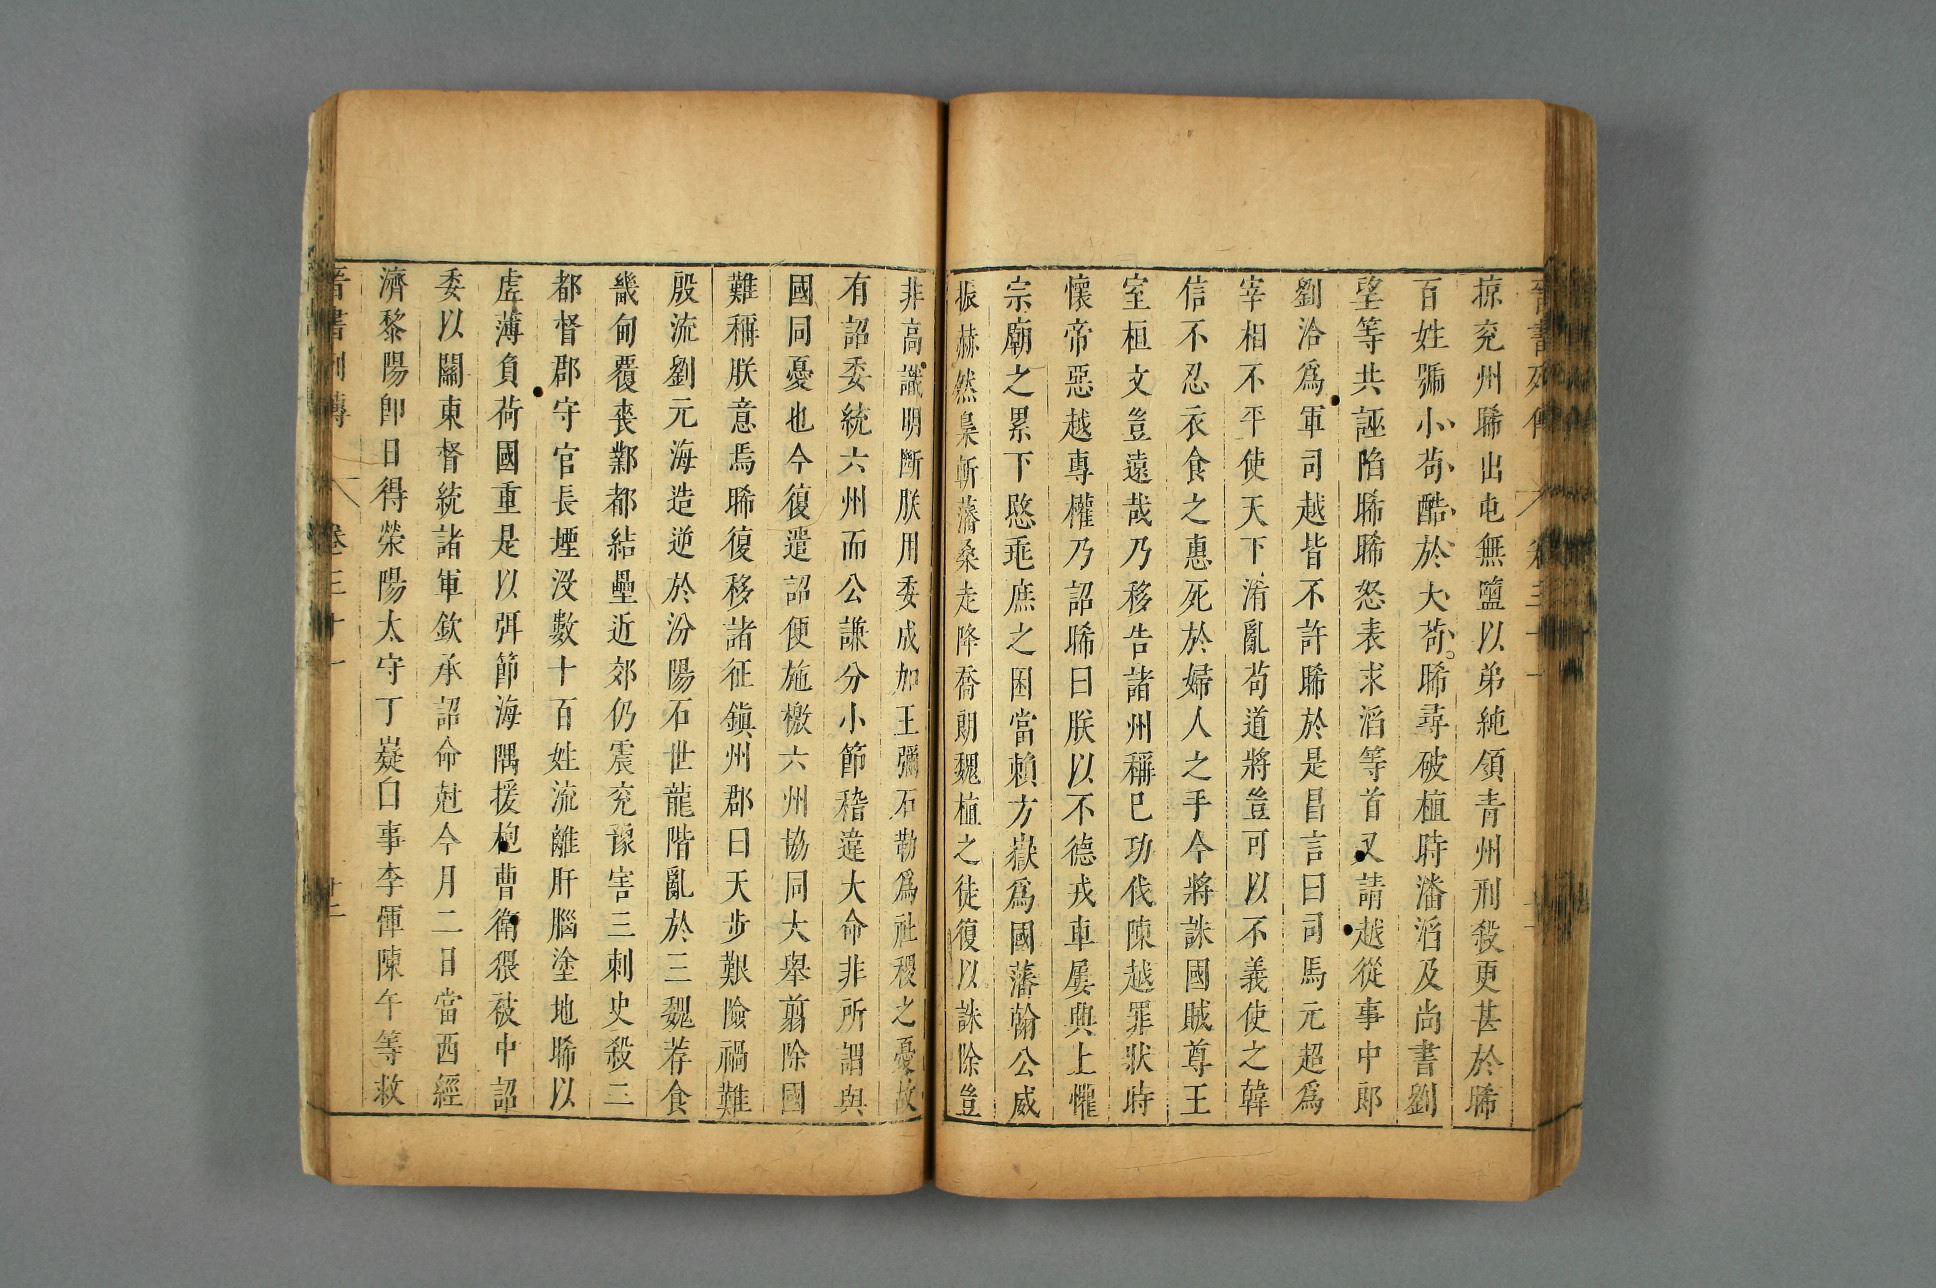 晉書列傳 卷三十一
掠兖州晞出屯無鹽以弟純領青州刑殺更甚於晞
百姓號小苟酷於大苟晞尋破植時潘滔及尚書劉
望等共誣陷晞晞怒表求滔等首又請越從事中郎
劉洽爲軍司越皆不許晞於是昌言曰司馬元超爲
宰相不平使天下淆亂苟道將豈可以不義使之韓
信不忍衣食之惠死於婦人之手今將誅國賊尊王
室桓文豈遠哉乃移告諸州稱已功伐陳越罪狀時
懷帝惡越專權乃詔晞曰朕以不德戎車屢興上懼
宗廟之累下愍兆庶之困當賴方嶽爲國藩翰公威
振赫然梟斬藩桑走降喬朗魏植之徒復以誅除豈
非高識明斷朕用委成加王彌石勒爲社稷之憂故
有詔委統六州而公謙分小節稽違大命非所謂與
國同憂也今復遣詔便施檄六州協同大舉翦除國
難稱朕意焉晞復移諸征鎮州郡曰天步艱險禍難
殷流劉元海造逆於汾陽石世龍階亂於三魏荐食
畿甸覆喪鄴都結壘近郊仍震兖豫害三刺史殺二
都督郡守官長堙没數十百姓流離肝腦塗地晞以
虗薄負荷國重是以弭節海隅援枹曹衛猥被中詔
委以關東督統諸軍欽承詔命尅今月二日當西經
濟黎陽卽日得滎陽太守丁嶷白事李惲陳午等救
晉書列傳 卷三十一 廿二